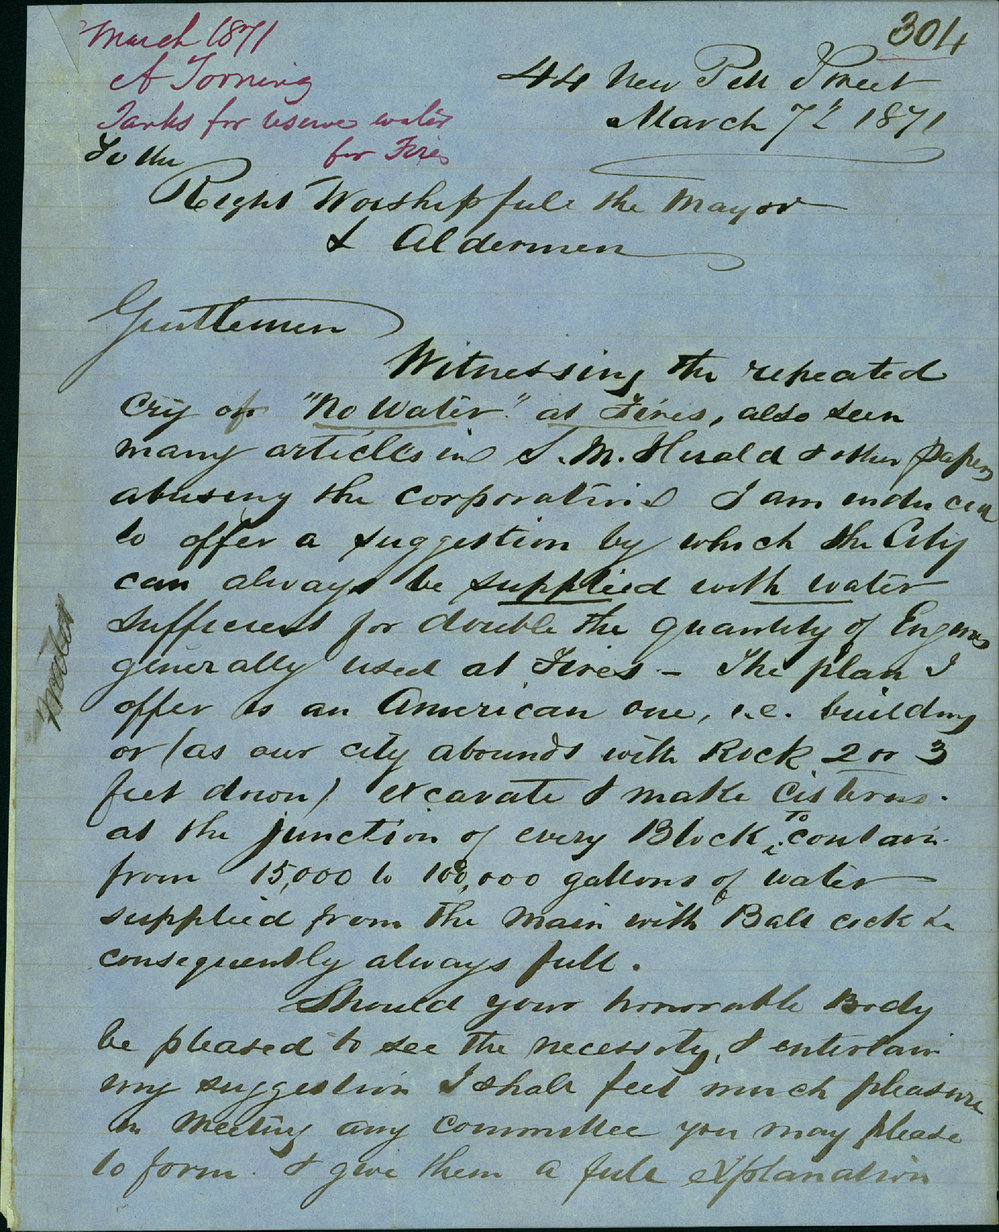 304
March 1871
A Torning
Tanks for reserve water
for Fires
44 New Pitt Street
March 7th 1871
To the
Right Worshipfull the Mayor
& Aldermen
Gentlemen
Witnessing the repeated
Cry of "No Water" at Fires, also seen
many articles in S. M. Herald & other papers
abusing the corporation I am induced
to offer a suggestion by which the City
can always be supplied with water
sufficient for double the quantity of Engines
generally used at Fires - The plan I
offer is an American one, i.e. building
or (as our city abounds with Rock 2 or 3
feet down) excavate & make cisterns.
at the junction of every Block, To contain
from 15,000 to 100,000 gallons of water
supplied from the main with Ball cock &c
consequently always full.
Should your honorable Body
be pleased to see the necessity, & entertain
my suggestion I shall feel much pleasure
in meeting any committee you may please
to form. & give them a full explanation
Water